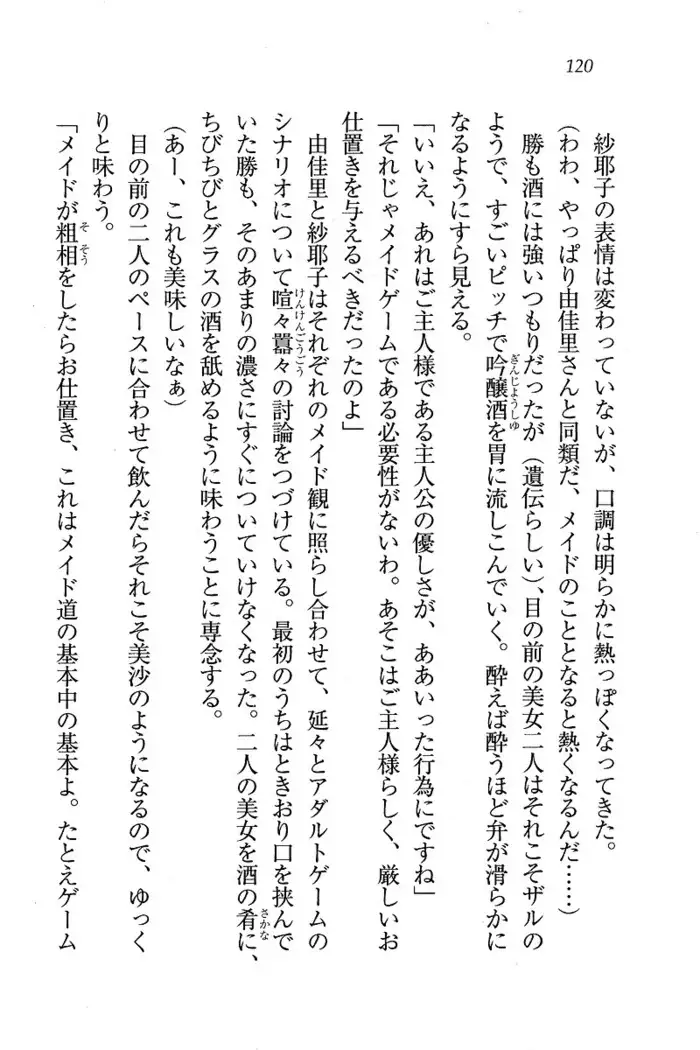 120
紗耶子の表情は変わっていないが、口調は明らかに熱っぽくなってきた。
(わわ、やっぱり由佳里さんと同類だ、メイドのこととなると熱くなるんだ……)
勝も酒には強いつもりだったが(遺伝らしい)、目の前の美女二人はそれこそザルの
ようで、すごいピッチで吟醸酒を胃に流しこんでいく。酔えば酔うほど弁が滑らかに
ぎんじょうしゅ
なるようにすら見える。
「いいえ、あれはご主人様である主人公の優しさが、ああいった行為にですね」
「それじゃメイドゲームである必要性がないわ。あそこはご主人様らしく、厳しいお
仕置きを与えるべきだったのよ」
由佳里と紗耶子はそれぞれのメイド観に照らし合わせて、延々とアダルトゲームの
シナリオについて喧々囂々の討論をつづけている。最初のうちはときおり口を挟んで
けんけんごうごう
いた勝も、そのあまりの濃さにすぐについていけなくなった。二人の美女を酒の肴に、
さかな
ちびちびとグラスの酒を舐めるように味わうことに専念する。
(あー、これも美味しいなぁ)
目の前の二人のペースに合わせて飲んだらそれこそ美沙のようになるので、ゆっく
りと味わう。
「メイドが粗相をしたらお仕置き、これはメイド道の基本中の基本よ。たとえゲーム
そそう